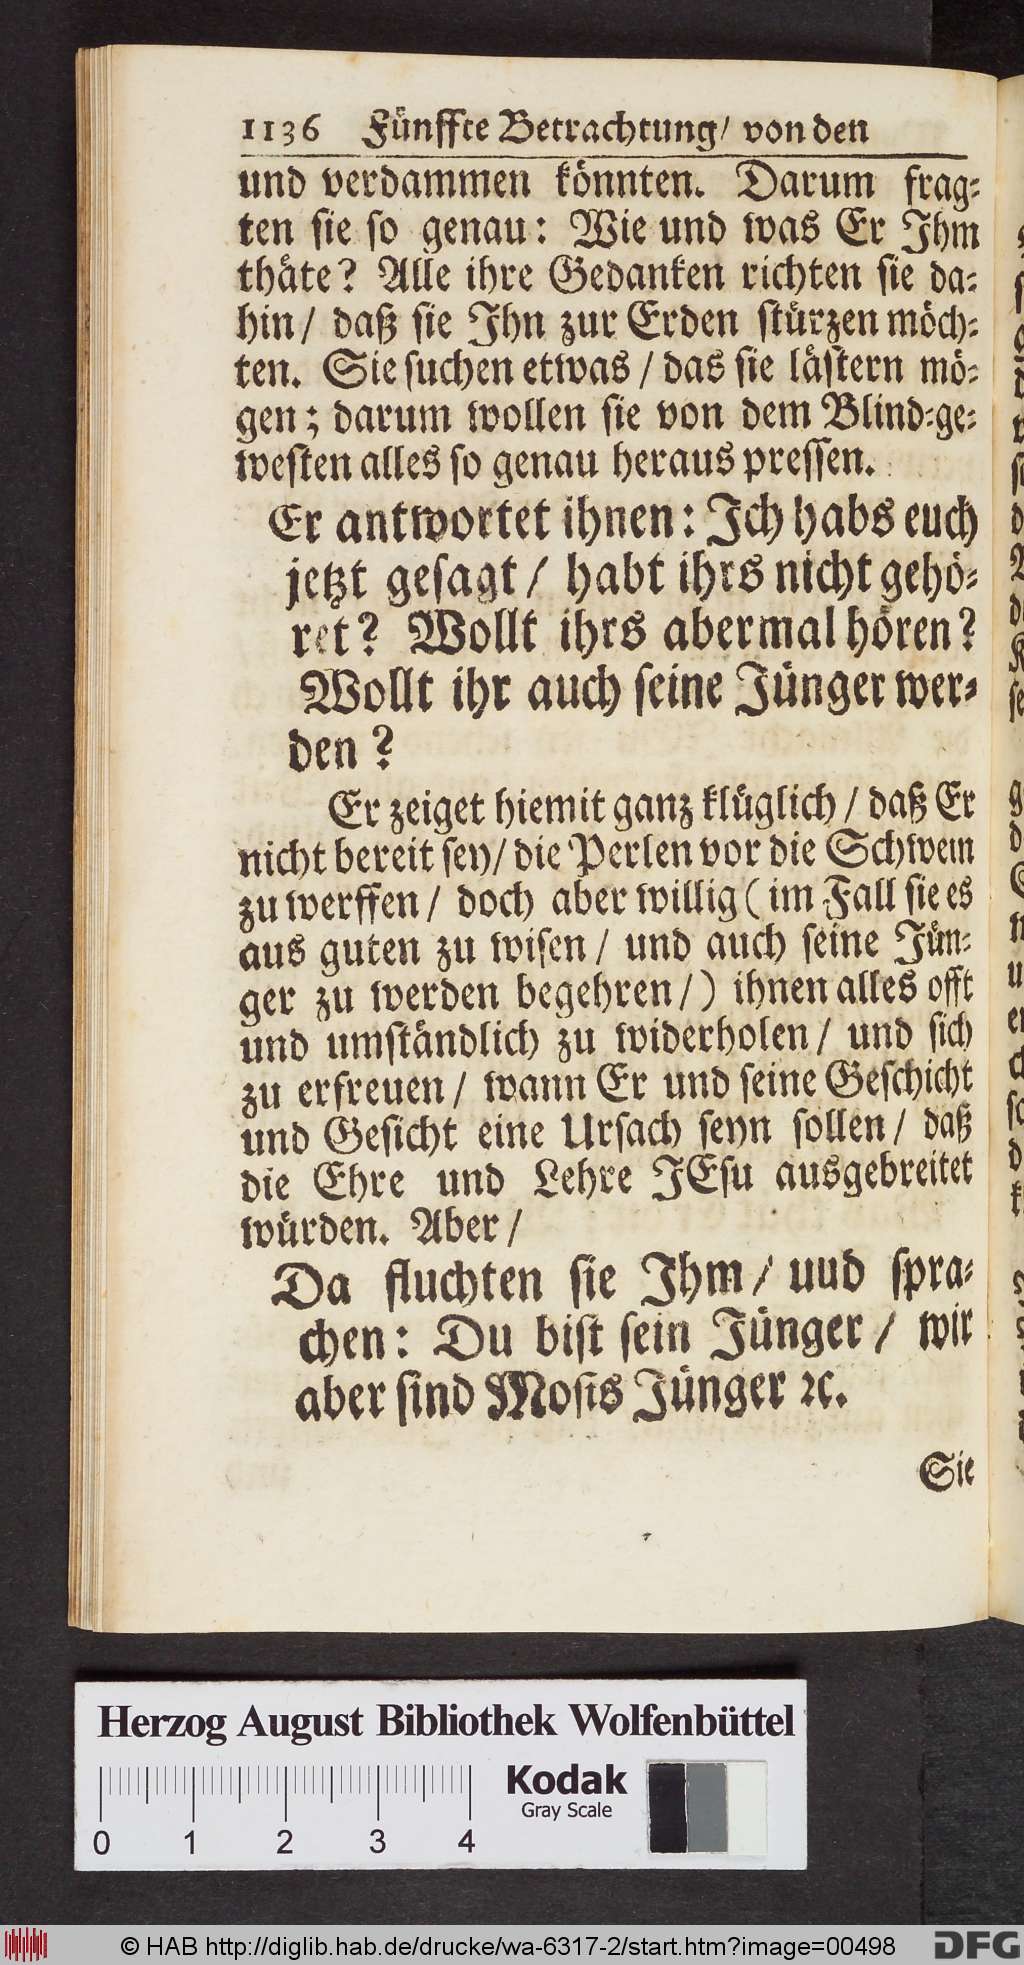 1136 Fünffte Betrachtung/ von den
und verdammen könnten. Darum frag⸗
ten sie so genau: Wie und was Er Ihm
thäte? Alle ihre Gedanken richten sie da⸗
hin/ daß sie Ihn zur Erden stürzen möch⸗
ten. Sie suchen etwas / das sie lästern mö⸗
gen; darum wollen sie von dem Blind⸗ge⸗
westen alles so genau heraus pressen.
Er antwortet ihnen: Ich habs euch
jetzt gesagt / habt ihrs nicht gehö⸗
ret? Wollt ihrs abermal hören?
Wollt ihr auch seine Jünger wer⸗
den?
Er zeiget hiemit ganz klüglich / daß Er
nicht bereit sey/ die Perlen vor die Schwein
zu werffen / doch aber willig ( im Fall sie es
aus guten zu wisen / und auch seine Jün⸗
ger zu werden begehren /) ihnen alles offt
und umständlich zu widerholen / und sich
zu erfreuen / wann Er und seine Geschicht
und Gesicht eine Ursach seyn sollen / daß
die Ehre und Lehre JEsu ausgebreitet
würden. Aber /
Da fluchten sie Ihm / uud spra⸗
chen: Du bist sein Jünger / wir
aber sind Mosis Jünger ꝛc.
Sie
Herzog August Bibliothek Wolfenbüttel
Kodak
Gray Scale
0 1 2 3 4
© HAB http://diglib.hab.de/drucke/wa-6317-2/start.htm?image=00498
DFG